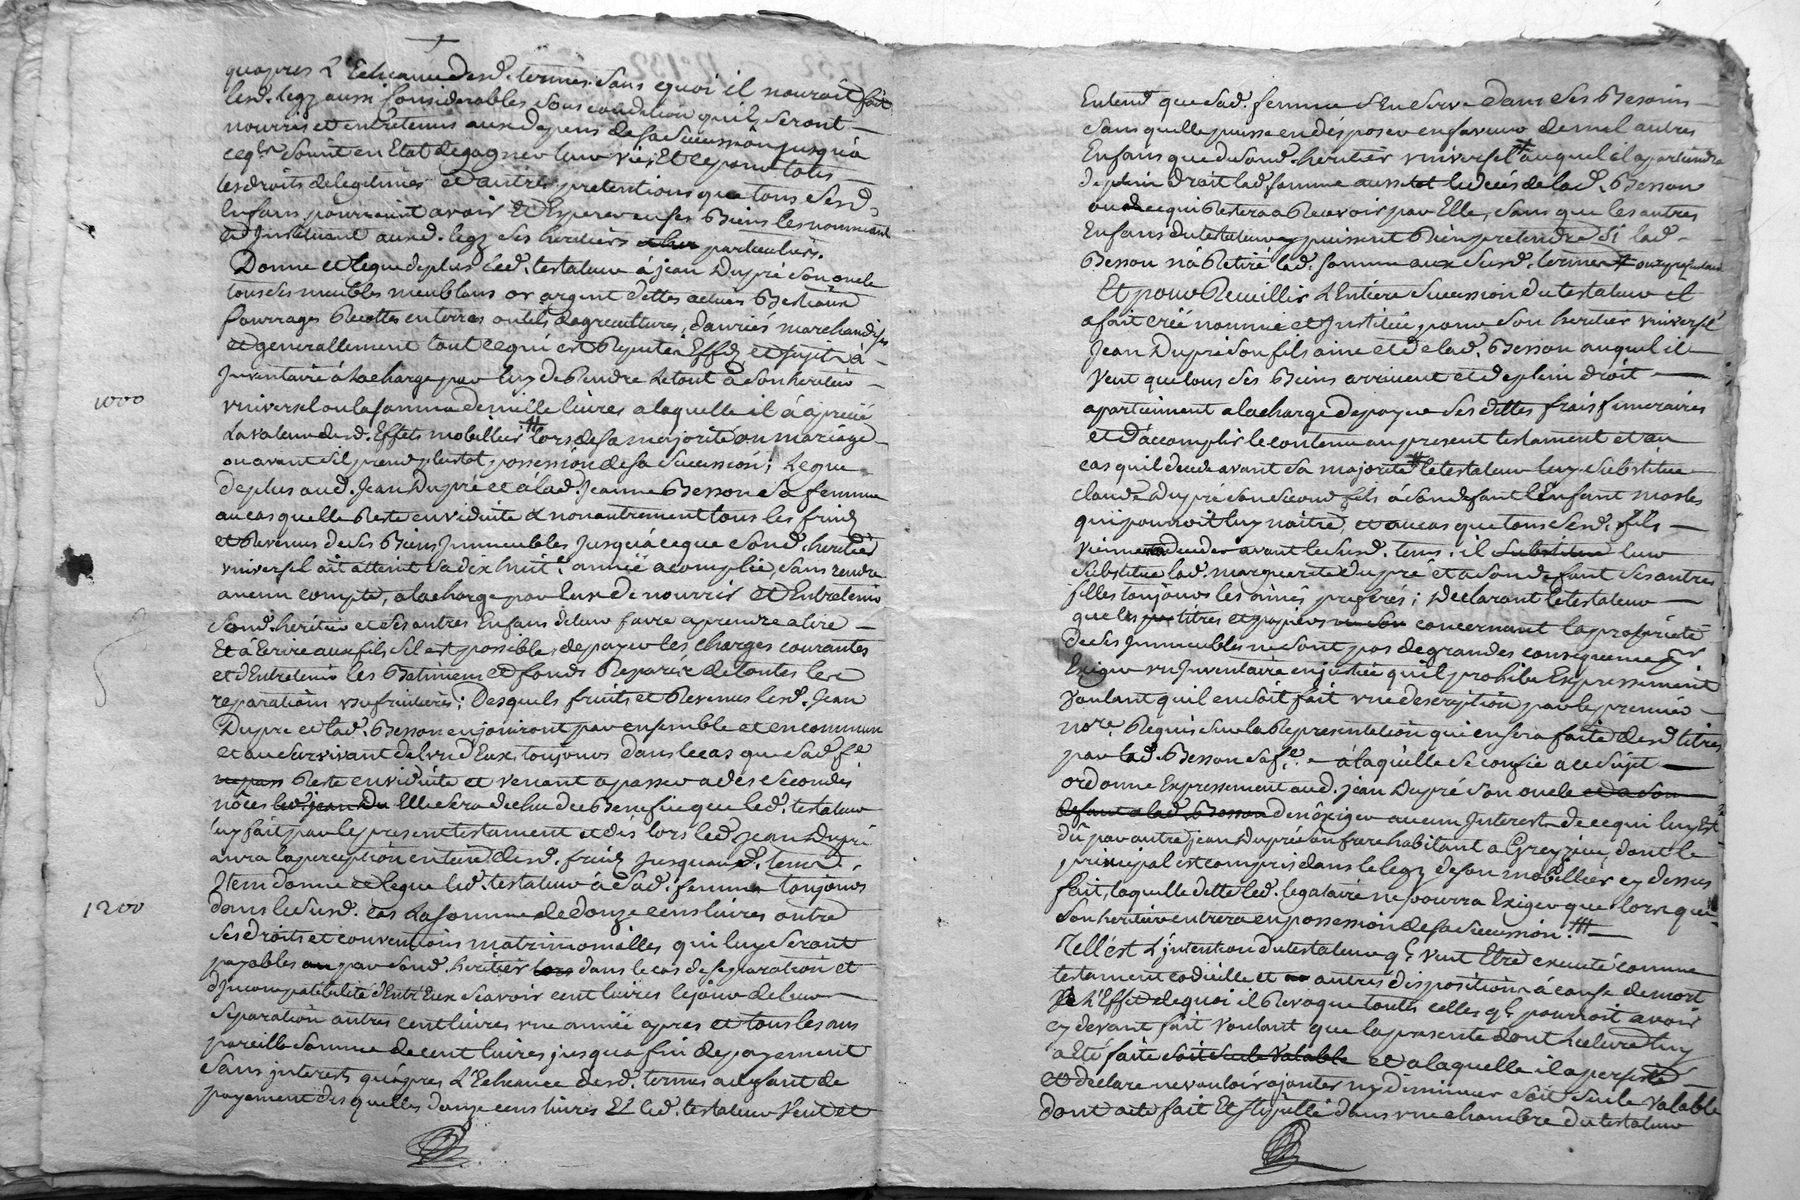 quapres L'Echeance desd. termes. Sans quoi il nauroit fait
lesd. legz aussi Considerables, sous condition quilz seront
nourris et entretenus aux depens de sa Succession jusqu'a
ceqls soint en Etat de gagner leur vie; Et ce pour tous
les droits de legitimes et autres pretentions que tous sesd.
Enfans pourroint avoir Et Esperer en ses Biens les nommant
et Instituant auxd. legz ses heritiers particuliers.
Donne et legue de plus led. testateur à jean Dupré son oncle
tous ses meubles meublans or argent dettes actives Bestiaux
fourrages Recottes en terres outils dagriculture, danrées marchandises
et generallement tout ce qui est Reputé Effez et sujet à
Inventaire à la charge par luy de Rendre le tout à son heritier
1000
vniversel ou la somme de mille livres a laquelle il à aprecié
la valeur desd. Effets mobillier # lors de sa majorité ou mariage
ou avant sil prend plustot possession de sa Succession; Legue
de plus aud. Jean Dupré et à lad. Jeanne Besson sa femme
au cas quelle Reste en viduité & non autrement tous les fruiz
et Revenus de ses Biens Immeubles Jusqua ceque sond. heritier
vniversel ait atteint sa dix huite. année acomplie sans rendre
aucun compte, a la charge par Eux de nourrir et Entretenir
sond. heritier et ses autres Enfans de leur faire aprendre a lire
Et à Ecrire aux fils sil est possible, de payer les charges courantes
et d'Entretenir les Batimens et fonds Reparer de toutes les
reparations vsufruitieres; Desquels fruits et Revenus lesd. Jean
Dupre et lad. Besson en jouiront par ensemble et en commun
et au Survivant de lun d'Eux, toujours dans le cas que sad. fe.
Reste en viduité et venant a passer a des secondes
nôces Elle sera dechue du Benefice que led. testateur
luy fait par le present testament et dés lors led. Jean Dupré
aura la perception entiere desd. fruiz jusquaud. tems.
Item donne et legue led. testateur à sad. femme toujours
1200
dans le susd. cas La somme de douze cens livres outre
ses droits et conventions matrimonialles qui luy seront
payables par sond. heritier dans le cas de separation et
dIncompatibilité d'Entr'Eux scavoir cent livres le jour de leur
Separation autres cent livres vne année apres et tous les ans
pareille somme de cent livres jusqua fin de payement
Sans interets quápres L'Echeance desd. termes a deffaut de
payement desquelles douze cens livres Et led. testateur Veut et
Entend que sad. femme sEn serve dans ses Besoins
Sans quelle puisse en disposer en faveur de nul autres
Enfans que du sond. heritier vniversel # auquel il apartiendra
de plein droit lad. somme aussitot le decés de lad. Besson
ou ce qui Restera a Recevoir par Elle, sans que les autres
Enfans du testateur y puissent Rien pretendre Si lad.
Besson n'a Retiré lad. somme aux susd. termes
Et pour Recueillir L'Entiere succession du testateur il
a fait créé nommé et Institué, pour son heritier vniversel
Jean Dupré son fils ainé et de lad. Besson auquel il
Veut que tous ses Biens arrivent et de plein droit
apartiennent a la charge de payer ses dettes frais funeraires
et d'accomplir le contenu au present testament et au
cas quil decede avant sa majorité # le testateur luy substitue
Claude Dupré son second fils à son defaut lEnfant masles
qui pourroit luy naitre, et au cas que tous sesd. fils
vinrent a deceder avant le susd. tems, il leur
Substitue lad. marguerite Dupré et a son defaut ses autres
filles toujours les ainés preferés; Declarant le testateur
que les titres et papiers concernant la proprieté
de ses Immeubles ne sont pas de grandes consequences pr.
Exiger vn Inventaire en justice quil prohibe Expressement
Voulant quil en soit fait vne description par le premier
nore. Requis sur la Representation qui en sera faite desd. titres
par lad. Besson sa fe. à laquelle se confie a ce sujet
ordonne Expressement aud. Jean Dupré son oncle
de nexiger aucun Interest de ce qui luy est
dû par autre jean Dupré son frere habitant a Grezieu, dont le
principal est compris dans le legz de son mobillier cy dessus
fait, laquelle dette led. legataire ne pourra Exiger que lorsque
son heritier entrera en possession de sa succession. #
Telle est L'Intention du testateur qe. veut Etre executé comme
testament codicille et autres disposition à cause de mort
à L'Effet de quoi il Revoque toutes celles qe. pourroit avoir
cy devant fait Voulant que la presente dont lecture luy
a eté faite et a laquelle il a persisté
et declare ne vouloir ajouter ny diminuer soit seule valable
dont acte fait Et stipullé dans vne chambre du testateur